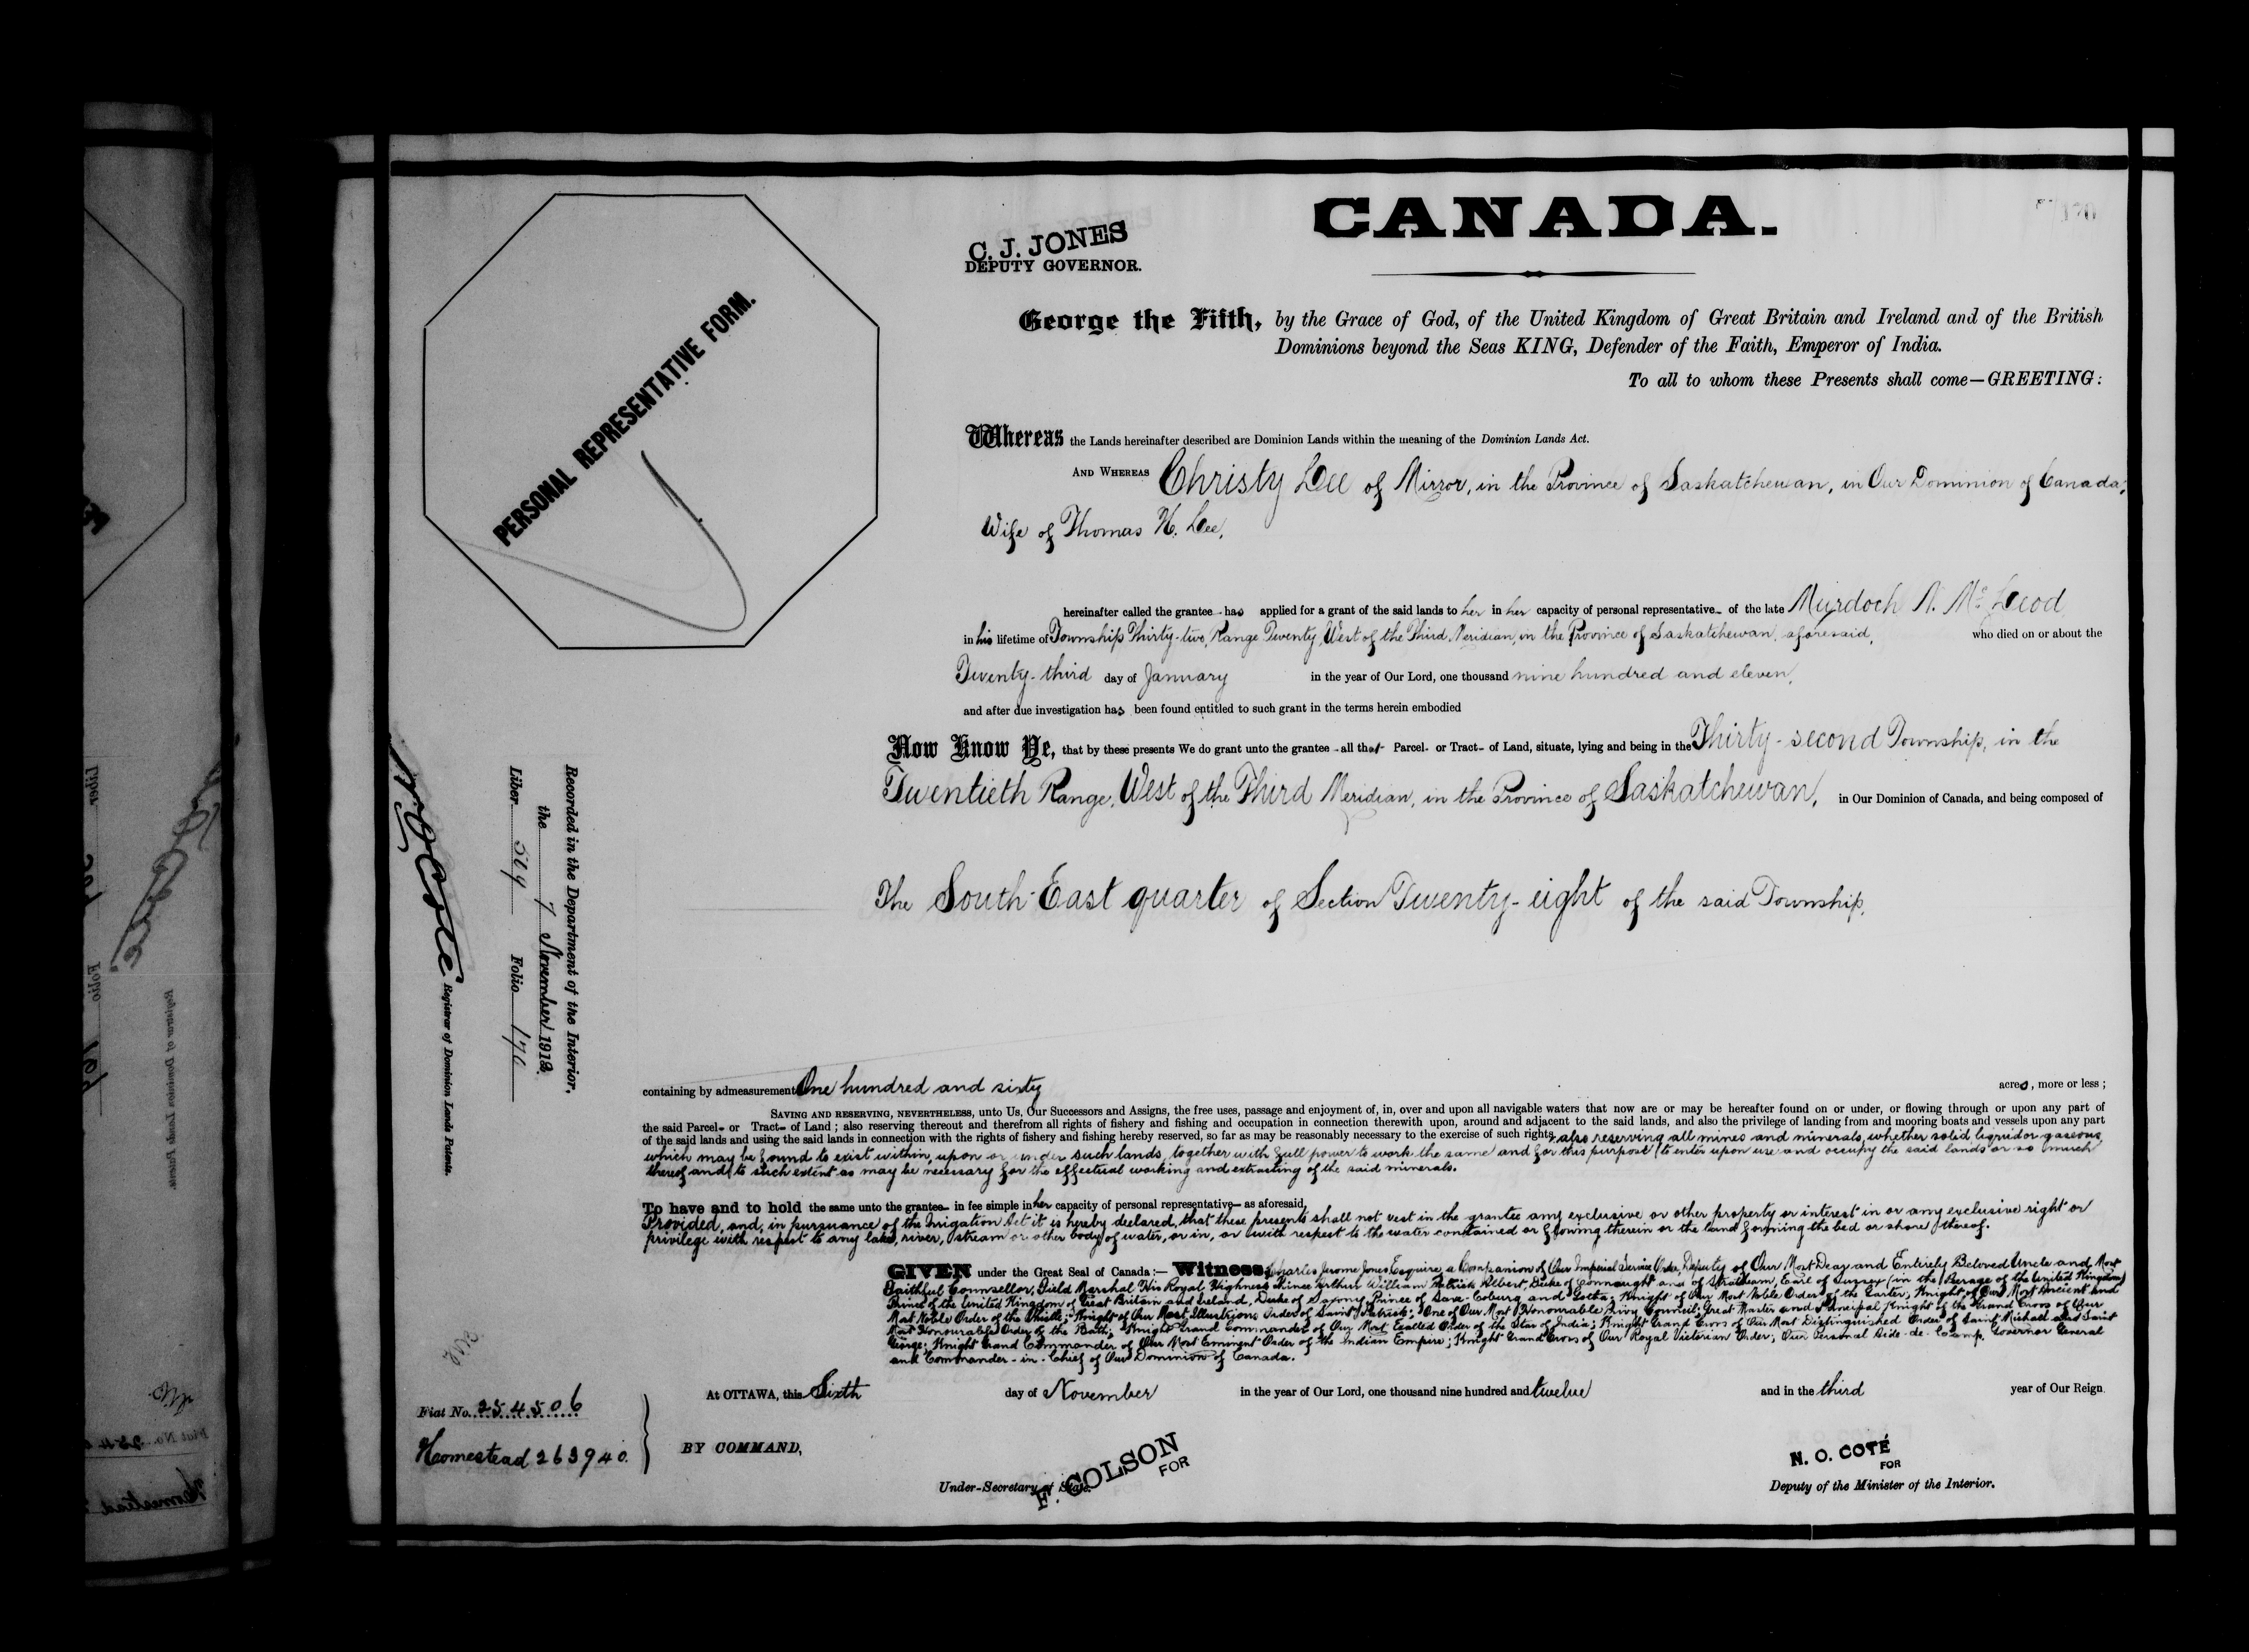 CANADA.
C. J. JONES
DEPUTY GOVERNOR.
PERSONAL REPRESENTATIVE FORM.
George the Fifth, by the Grace of God, of the United Kingdom of Great Britain and Ireland and of the British
Dominions beyond the Seas KING, Defender of the Faith, Emperor of India.
To all to whom these Presents shall come—GREETING:
Whereas the Lands hereinafter described are Dominion Lands within the meaning of the Dominion Lands Act.
AND WHEREAS Christy Lee of Mirror, in the Province of Saskatchewan, in Our Dominion of Canada,
Wife of Thomas H. Lee,
hereinafter called the grantee has applied for a grant of the said lands to her in her capacity of personal representative of the late Murdoch N. McLeod
in his lifetime of Township Thirty-two, Range Twenty, West of the Third Meridian, in the Province of Saskatchewan, aforesaid, who died on or about the
Twenty-third day of January in the year of Our Lord, one thousand nine hundred and eleven,
and after due investigation has been found entitled to such grant in the terms herein embodied
Now Know Ye, that by these presents We do grant unto the grantee all that Parcel or Tract of Land, situate, lying and being in the Thirty-second Township, in the
Twentieth Range, West of the Third Meridian, in the Province of Saskatchewan, in Our Dominion of Canada, and being composed of
The South-East quarter of Section Twenty-eight of the said Township,
containing by admeasurement One hundred and sixty acres, more or less;
SAVING AND RESERVING, NEVERTHELESS, unto Us, Our Successors and Assigns, the free uses, passage and enjoyment of, in, over and upon all navigable waters that now are or may be hereafter found on or under, or flowing through or upon any part of
the said Parcel or Tract of Land; also reserving thereout and therefrom all rights of fishery and fishing and occupation in connection therewith upon, around and adjacent to the said lands, and also the privilege of landing from and mooring boats and vessels upon any part
of the said lands and using the said lands in connection with the rights of fishery and fishing hereby reserved, so far as may be reasonably necessary to the exercise of such rights, also reserving all mines and minerals, whether solid liquid or gaseous
which may be found to exist within, upon or under such lands, together with full power to work the same and for this purpose to enter upon use and occupy the said lands or so much
thereof and to such extent as may be necessary for the effectual working and extracting of the said minerals.
To have and to hold the same unto the grantee in fee simple in her capacity of personal representative as aforesaid,
Provided, and, in pursuance of the Irrigation Act it is hereby declared, that these presents shall not vest in the grantee any exclusive or other property or interest in or any exclusive right or
privilege with respect to any lake, river, stream or other body of water, or in, or with respect to the water contained or flowing therein or the land forming the bed or shore thereof.
GIVEN under the Great Seal of Canada:— Witness, Charles Jerome Jones Esquire, a Companion of Our Imperial Service Order, Deputy of Our Most Dear and Entirely Beloved Uncle and Most
Faithful Counsellor, Field Marshal His Royal Highness Prince Arthur William Patrick Albert, Duke of Connaught and of Strathearn, Earl of Sussex (in the Peerage of the United Kingdom)
Prince of the United Kingdom of Great Britain and Ireland, Duke of Saxony, Prince of Saxe-Coburg and Gotha; Knight of Our Most Noble Order of the Garter; Knight of Our Most Ancient and
Most Noble Order of the Thistle; Knight of Our Most Illustrious Order of Saint Patrick; One of Our Most Honourable Privy Council; Great Master and Principal Knight of the Grand Cross of Our
Most Honourable Order of the Bath; Knight Grand Commander of Our Most Exalted Order of the Star of India; Knight Grand Cross of Our Most Distinguished Order of Saint Michael and Saint
George; Knight Grand Commander of Our Most Eminent Order of the Indian Empire; Knight Grand Cross of Our Royal Victorian Order; Our Personal Aide-de-Camp, Governor General
and Commander-in-Chief of Our Dominion of Canada.
At OTTAWA, this Sixth day of November in the year of Our Lord, one thousand nine hundred and twelve and in the third year of Our Reign.
BY COMMAND,
F. COLSON
FOR
Under-Secretary of State.
N. O. COTÉ
FOR
Deputy of the Minister of the Interior.
Fiat No. 254506
Homestead 263940.
Recorded in the Department of the Interior,
the 7 November 1912.
Liber Folio 170
N O Coté Registrar of Dominion Lands Patents.